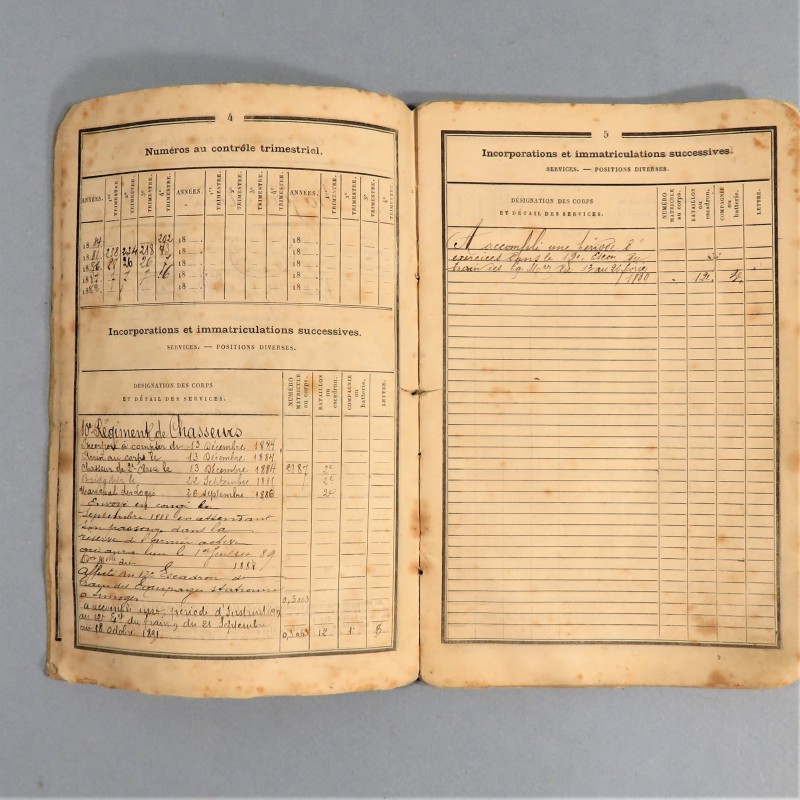 4
Numéros au contrôle trimestriel.
ANNÉES. 1er TRIMESTRE. 2e TRIMESTRE. 3e TRIMESTRE. 4e TRIMESTRE. ANNÉES. 1er TRIMESTRE. 2e TRIMESTRE. 3e TRIMESTRE. 4e TRIMESTRE. ANNÉES. 1er TRIMESTRE. 2e TRIMESTRE. 3e TRIMESTRE. 4e TRIMESTRE.
1884 202 18 18
18 224 218 18 18
1886 26 26 18 18
1887 7 7 7 18 18
18 18 18
Incorporations et immatriculations successives.
SERVICES. — POSITIONS DIVERSES.
DÉSIGNATION DES CORPS ET DÉTAIL DES SERVICES. NUMÉRO MATRICULE au corps. BATAILLON ou escadron. COMPAGNIE ou batterie. LETTRE.
10e Régiment de Chasseurs
Incorporé à compter du 13 Décembre 1884
Arrivé au corps le 13 Décembre 1884
Chasseur de 2e Classe le 13 Décembre 1884 2187 2e
Brigadier le 22 Septembre 1885 2e
Maréchal des logis 20 Septembre 1886 2e
Envoyé en congé le
Septembre 1888 en attendant
son passage dans la
réserve de l'armée active
qui aura lieu le 1er Juillet 89
1888
Affecté au 12e Escadron du
train des Equipages stationné
à Limoges
a accompli une période d'Instruction
au 12e Eon du train, du 21 Septembre
au 18 Octobre 1891. 12 1 B
5
Incorporations et immatriculations successives.
SERVICES. — POSITIONS DIVERSES.
DÉSIGNATION DES CORPS ET DÉTAIL DES SERVICES. NUMÉRO MATRICULE au corps. BATAILLON ou escadron. COMPAGNIE ou batterie. LETTRE.
A accompli une période d'
exercices dans le 12e Escon du
train des 13 au 26